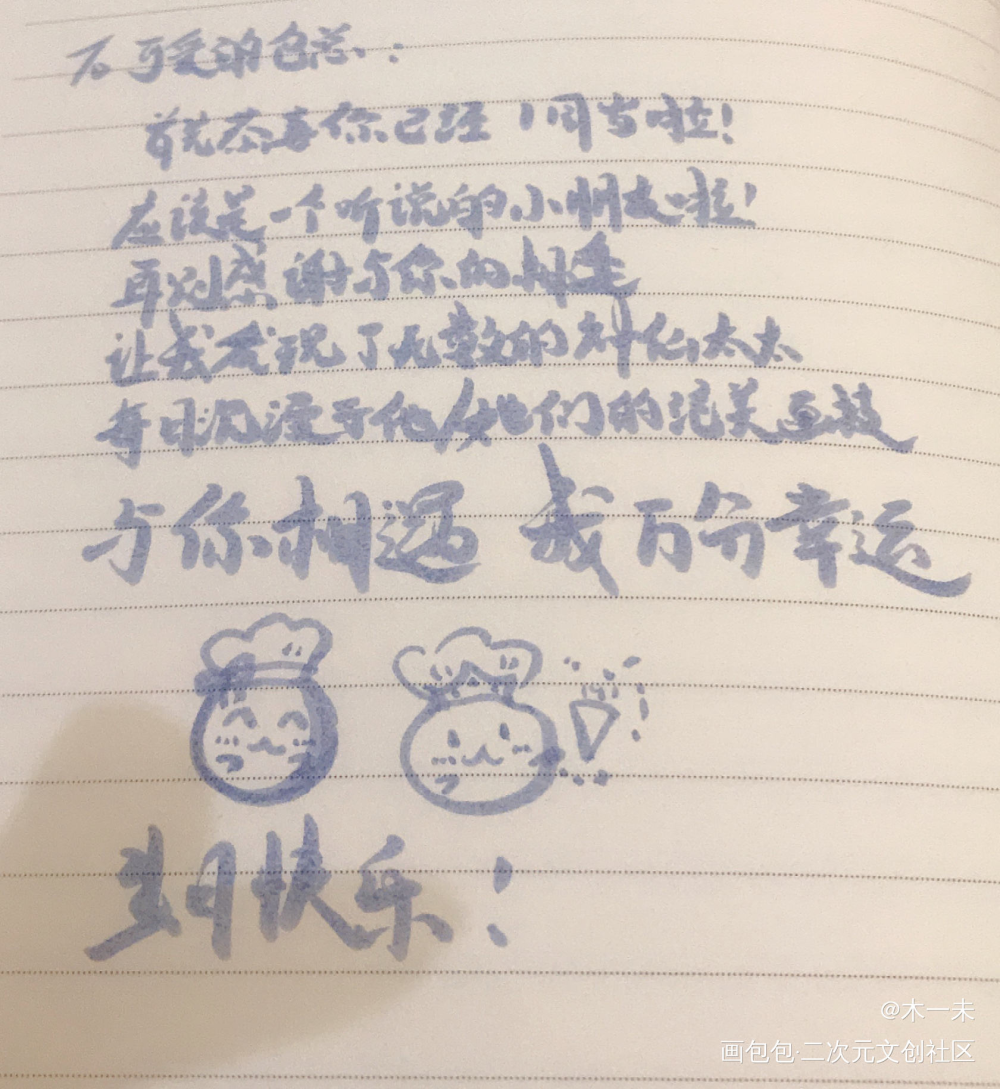 To 可爱的包总:
首先恭喜你已经1周岁啦!
应该是一个听说的小朋友啦!
再对感谢与你的相逢
让我发现了无数的神仙太太
每日沉浸于他/她们的绝美画技
与你相遇 我万分幸运
生日快乐!
@木一未
画包包·二次元文创社区